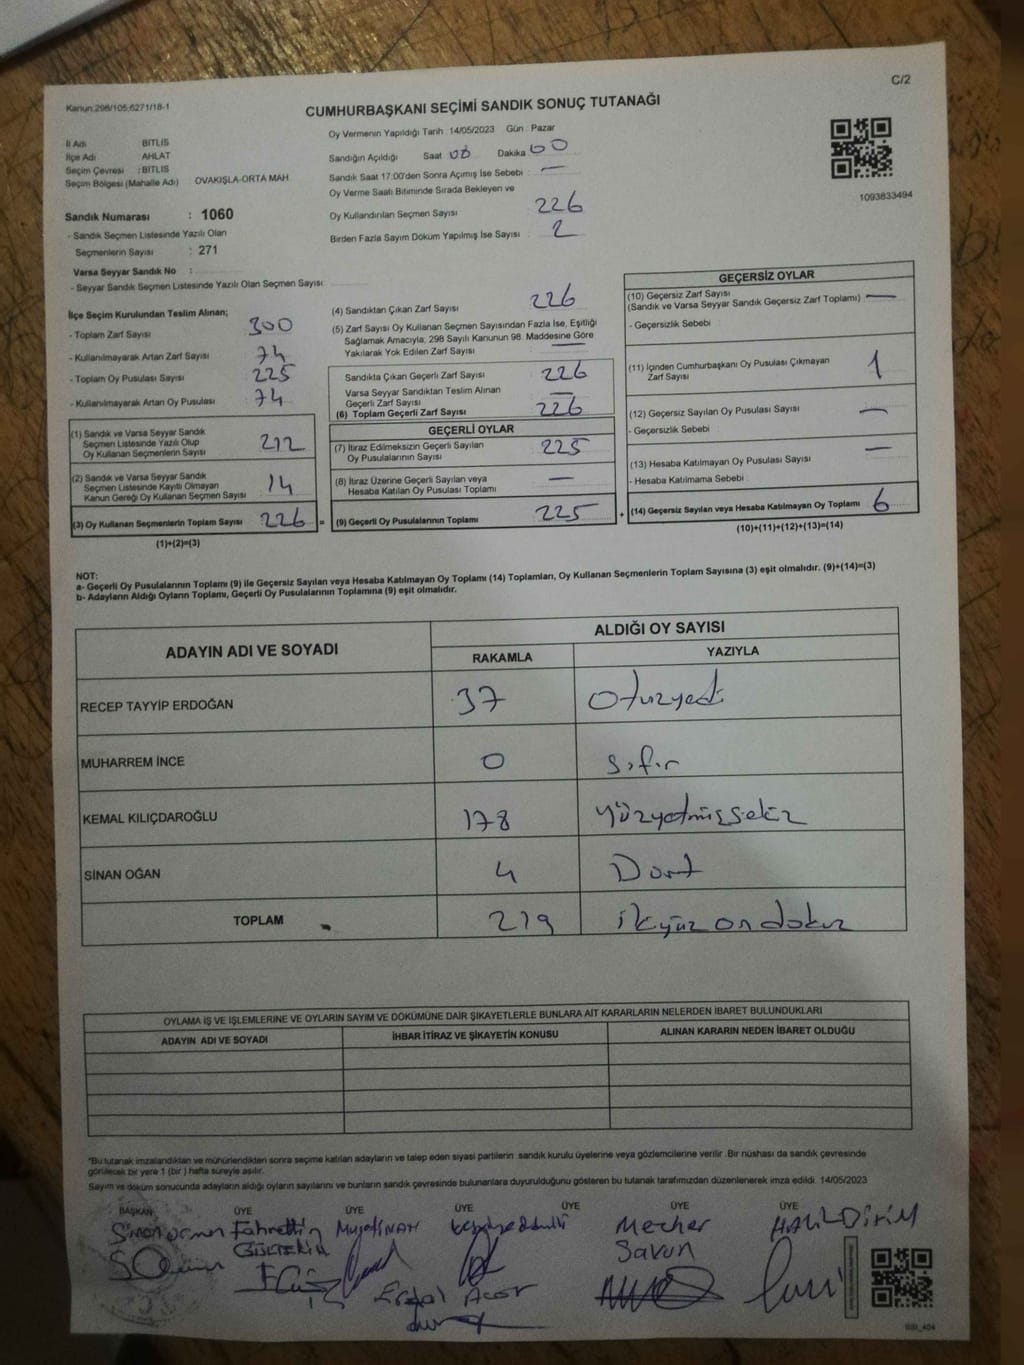 C/2
Kanun:298/105;6271/18-1
CUMHURBAŞKANI SEÇİMİ SANDIK SONUÇ TUTANAĞI
İl Adı BİTLİS
İlçe Adı AHLAT
Seçim Çevresi : BİTLİS
Seçim Bölgesi (Mahalle Adı) OVAKIŞLA-ORTA MAH
Oy Vermenin Yapıldığı Tarih : 14/05/2023 Gün : Pazar
Sandığın Açıldığı Saat 08 Dakika 00
Sandık Saat 17:00'den Sonra Açımış İse Sebebi : —
Oy Verme Saati Bitiminde Sırada Bekleyen ve
Oy Kullandırılan Seçmen Sayısı 226
Birden Fazla Sayım Döküm Yapılmış İse Sayısı : 2
1093833494
Sandık Numarası : 1060
- Sandık Seçmen Listesinde Yazılı Olan
Seçmenlerin Sayısı : 271
Varsa Seyyar Sandık No :
- Seyyar Sandık Seçmen Listesinde Yazılı Olan Seçmen Sayısı:
İlçe Seçim Kurulundan Teslim Alınan;
- Toplam Zarf Sayısı 300
- Kullanılmayarak Artan Zarf Sayısı 74
- Toplam Oy Pusulası Sayısı 225
- Kullanılmayarak Artan Oy Pusulası 74
(1) Sandık ve Varsa Seyyar Sandık
Seçmen Listesinde Yazılı Olup
Oy Kullanan Seçmenlerin Sayısı 212
(2) Sandık ve Varsa Seyyar Sandık
Seçmen Listesinde Kayıtlı Olmayan
Kanun Gereği Oy Kullanan Seçmen Sayısı 14
(3) Oy Kullanan Seçmenlerin Toplam Sayısı 226 =
(1)+(2)=(3)
(4) Sandıktan Çıkan Zarf Sayısı 226
(5) Zarf Sayısı Oy Kullanan Seçmen Sayısından Fazla İse, Eşitliği
Sağlamak Amacıyla, 298 Sayılı Kanunun 98. Maddesine Göre
Yakılarak Yok Edilen Zarf Sayısı —
Sandıkta Çıkan Geçerli Zarf Sayısı 226
Varsa Seyyar Sandıktan Teslim Alınan
Geçerli Zarf Sayısı —
(6) Toplam Geçerli Zarf Sayısı 226
GEÇERLİ OYLAR
(7) İtiraz Edilmeksizin Geçerli Sayılan
Oy Pusulalarının Sayısı 225
(8) İtiraz Üzerine Geçerli Sayılan veya
Hesaba Katılan Oy Pusulası Toplamı —
(9) Geçerli Oy Pusulalarının Toplamı 225 +
GEÇERSİZ OYLAR
(10) Geçersiz Zarf Sayısı
(Sandık ve Varsa Seyyar Sandık Geçersiz Zarf Toplamı) —
- Geçersizlik Sebebi :
(11) İçinden Cumhurbaşkanı Oy Pusulası Çıkmayan
Zarf Sayısı 1
(12) Geçersiz Sayılan Oy Pusulası Sayısı —
- Geçersizlik Sebebi :
(13) Hesaba Katılmayan Oy Pusulası Sayısı —
- Hesaba Katılmama Sebebi :
(14) Geçersiz Sayılan veya Hesaba Katılmayan Oy Toplamı 6
(10)+(11)+(12)+(13)=(14)
NOT:
a- Geçerli Oy Pusulalarının Toplamı (9) ile Geçersiz Sayılan veya Hesaba Katılmayan Oy Toplamı (14) Toplamları, Oy Kullanan Seçmenlerin Toplam Sayısına (3) eşit olmalıdır. (9)+(14)=(3)
b- Adayların Aldığı Oyların Toplamı, Geçerli Oy Pusulalarının Toplamına (9) eşit olmalıdır.
ADAYIN ADI VE SOYADI ALDIĞI OY SAYISI
RAKAMLA YAZIYLA
RECEP TAYYİP ERDOĞAN 37 Otuzyedi
MUHARREM İNCE 0 sıfır
KEMAL KILIÇDAROĞLU 178 Yüzyetmişsekiz
SİNAN OĞAN 4 Dört
TOPLAM 219 ikiyüz on dokuz
OYLAMA İŞ VE İŞLEMLERİNE VE OYLARIN SAYIM VE DÖKÜMÜNE DAİR ŞİKAYETLERLE BUNLARA AİT KARARLARIN NELERDEN İBARET BULUNDUKLARI
ADAYIN ADI VE SOYADI İHBAR İTİRAZ VE ŞİKAYETİN KONUSU ALINAN KARARIN NEDEN İBARET OLDUĞU
"Bu tutanak imzalandıktan ve mühürlendikten sonra seçime katılan adayların ve talep eden siyasi partilerin sandık kurulu üyelerine veya gözlemcilerine verilir .Bir nüshası da sandık çevresinde
görülecek bir yere 1 (bir ) hafta süreyle asılır.
Sayım ve döküm sonucunda adayların aldığı oyların sayılarını ve bunların sandık çevresinde bulunanlara duyurulduğunu gösteren bu tutanak tarafımızdan düzenlenerek imza edildi. 14/05/2023
BAŞKAN ÜYE ÜYE ÜYE ÜYE ÜYE
Fahrettin Mecher HALİL DİRİM
GÜLTEKİN Savun
Erdal Acar